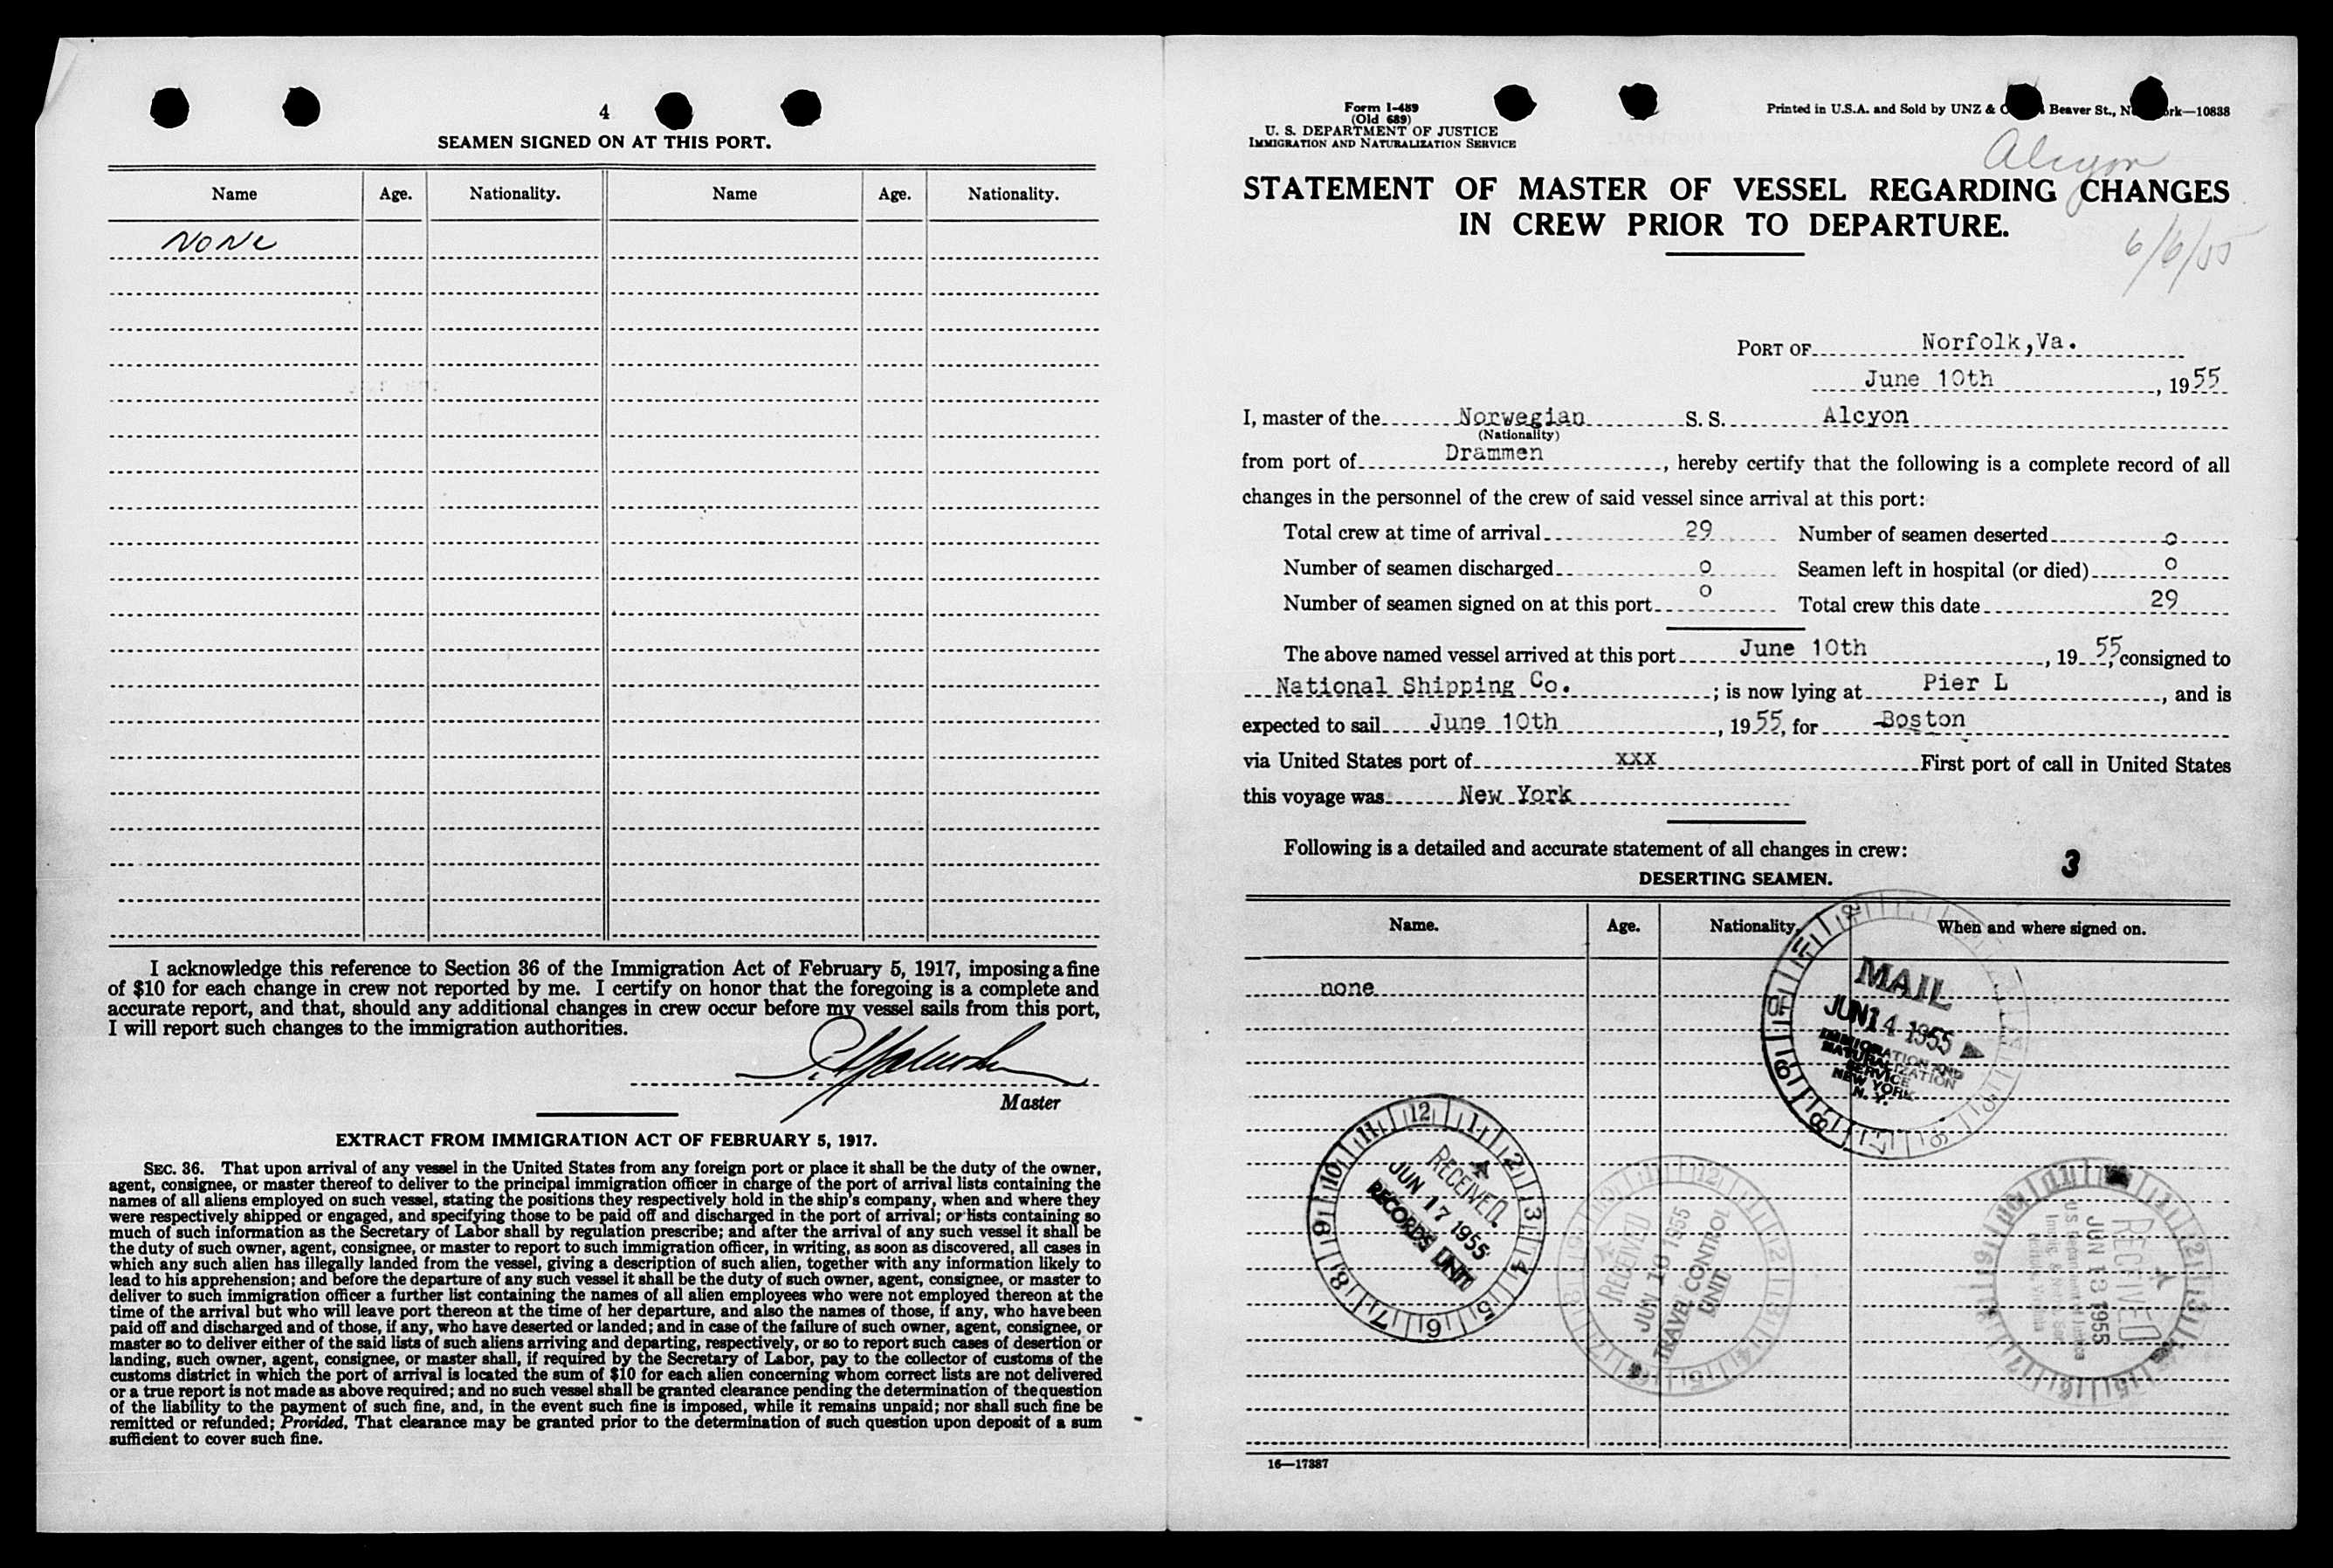 4
SEAMEN SIGNED ON AT THIS PORT.
Name Age. Nationality. Name Age. Nationality.
NONE
I acknowledge this reference to Section 36 of the Immigration Act of February 5, 1917, imposing a fine
of $10 for each change in crew not reported by me. I certify on honor that the foregoing is a complete and
accurate report, and that, should any additional changes in crew occur before my vessel sails from this port,
I will report such changes to the immigration authorities.
Master
EXTRACT FROM IMMIGRATION ACT OF FEBRUARY 5, 1917.
SEC. 36. That upon arrival of any vessel in the United States from any foreign port or place it shall be the duty of the owner,
agent, consignee, or master thereof to deliver to the principal immigration officer in charge of the port of arrival lists containing the
names of all aliens employed on such vessel, stating the positions they respectively hold in the ship's company, when and where they
were respectively shipped or engaged, and specifying those to be paid off and discharged in the port of arrival; or lists containing so
much of such information as the Secretary of Labor shall by regulation prescribe; and after the arrival of any such vessel it shall be
the duty of such owner, agent, consignee, or master to report to such immigration officer, in writing, as soon as discovered, all cases in
which any such alien has illegally landed from the vessel, giving a description of such alien, together with any information likely to
lead to his apprehension; and before the departure of any such vessel it shall be the duty of such owner, agent, consignee, or master to
deliver to such immigration officer a further list containing the names of all alien employees who were not employed thereon at the
time of the arrival but who will leave port thereon at the time of her departure, and also the names of those, if any, who have been
paid off and discharged and of those, if any, who have deserted or landed; and in case of the failure of such owner, agent, consignee, or
master so to deliver either of the said lists of such aliens arriving and departing, respectively, or so to report such cases of desertion or
landing, such owner, agent, consignee, or master shall, if required by the Secretary of Labor, pay to the collector of customs of the
customs district in which the port of arrival is located the sum of $10 for each alien concerning whom correct lists are not delivered
or a true report is not made as above required; and no such vessel shall be granted clearance pending the determination of the question
of the liability to the payment of such fine, and, in the event such fine is imposed, while it remains unpaid; nor shall such fine be
remitted or refunded; Provided, That clearance may be granted prior to the determination of such question upon deposit of a sum
sufficient to cover such fine.
Form I-489
(Old 689)
U. S. DEPARTMENT OF JUSTICE
IMMIGRATION AND NATURALIZATION SERVICE
Printed in U.S.A. and Sold by UNZ & Beaver St., —10838
Alcyon
STATEMENT OF MASTER OF VESSEL REGARDING CHANGES
IN CREW PRIOR TO DEPARTURE.
6/6/55
PORT OF Norfolk,Va.
June 10th, 1955
I, master of the Norwegian S. S. Alcyon
(Nationality)
from port of Drammen, hereby certify that the following is a complete record of all
changes in the personnel of the crew of said vessel since arrival at this port:
Total crew at time of arrival 29 Number of seamen deserted o
Number of seamen discharged o Seamen left in hospital (or died) o
Number of seamen signed on at this port o Total crew this date 29
The above named vessel arrived at this port June 10th, 19 55, consigned to
National Shipping Co.; is now lying at Pier L, and is
expected to sail June 10th, 1955, for Boston
via United States port of xxx First port of call in United States
this voyage was New York
Following is a detailed and accurate statement of all changes in crew:
3
DESERTING SEAMEN.
Name. Age. Nationality. When and where signed on.
none
MAIL
JUN 14 1955
IMMIGRATION AND
NATURALIZATION
SERVICE
NEW YORK
N. Y.
RECEIVED
JUN 17 1955
RECORDS UNIT
RECEIVED
JUN 16 1955
TRAVEL CONTROL
UNIT
RECEIVED
JUN 13 1955
16—17387